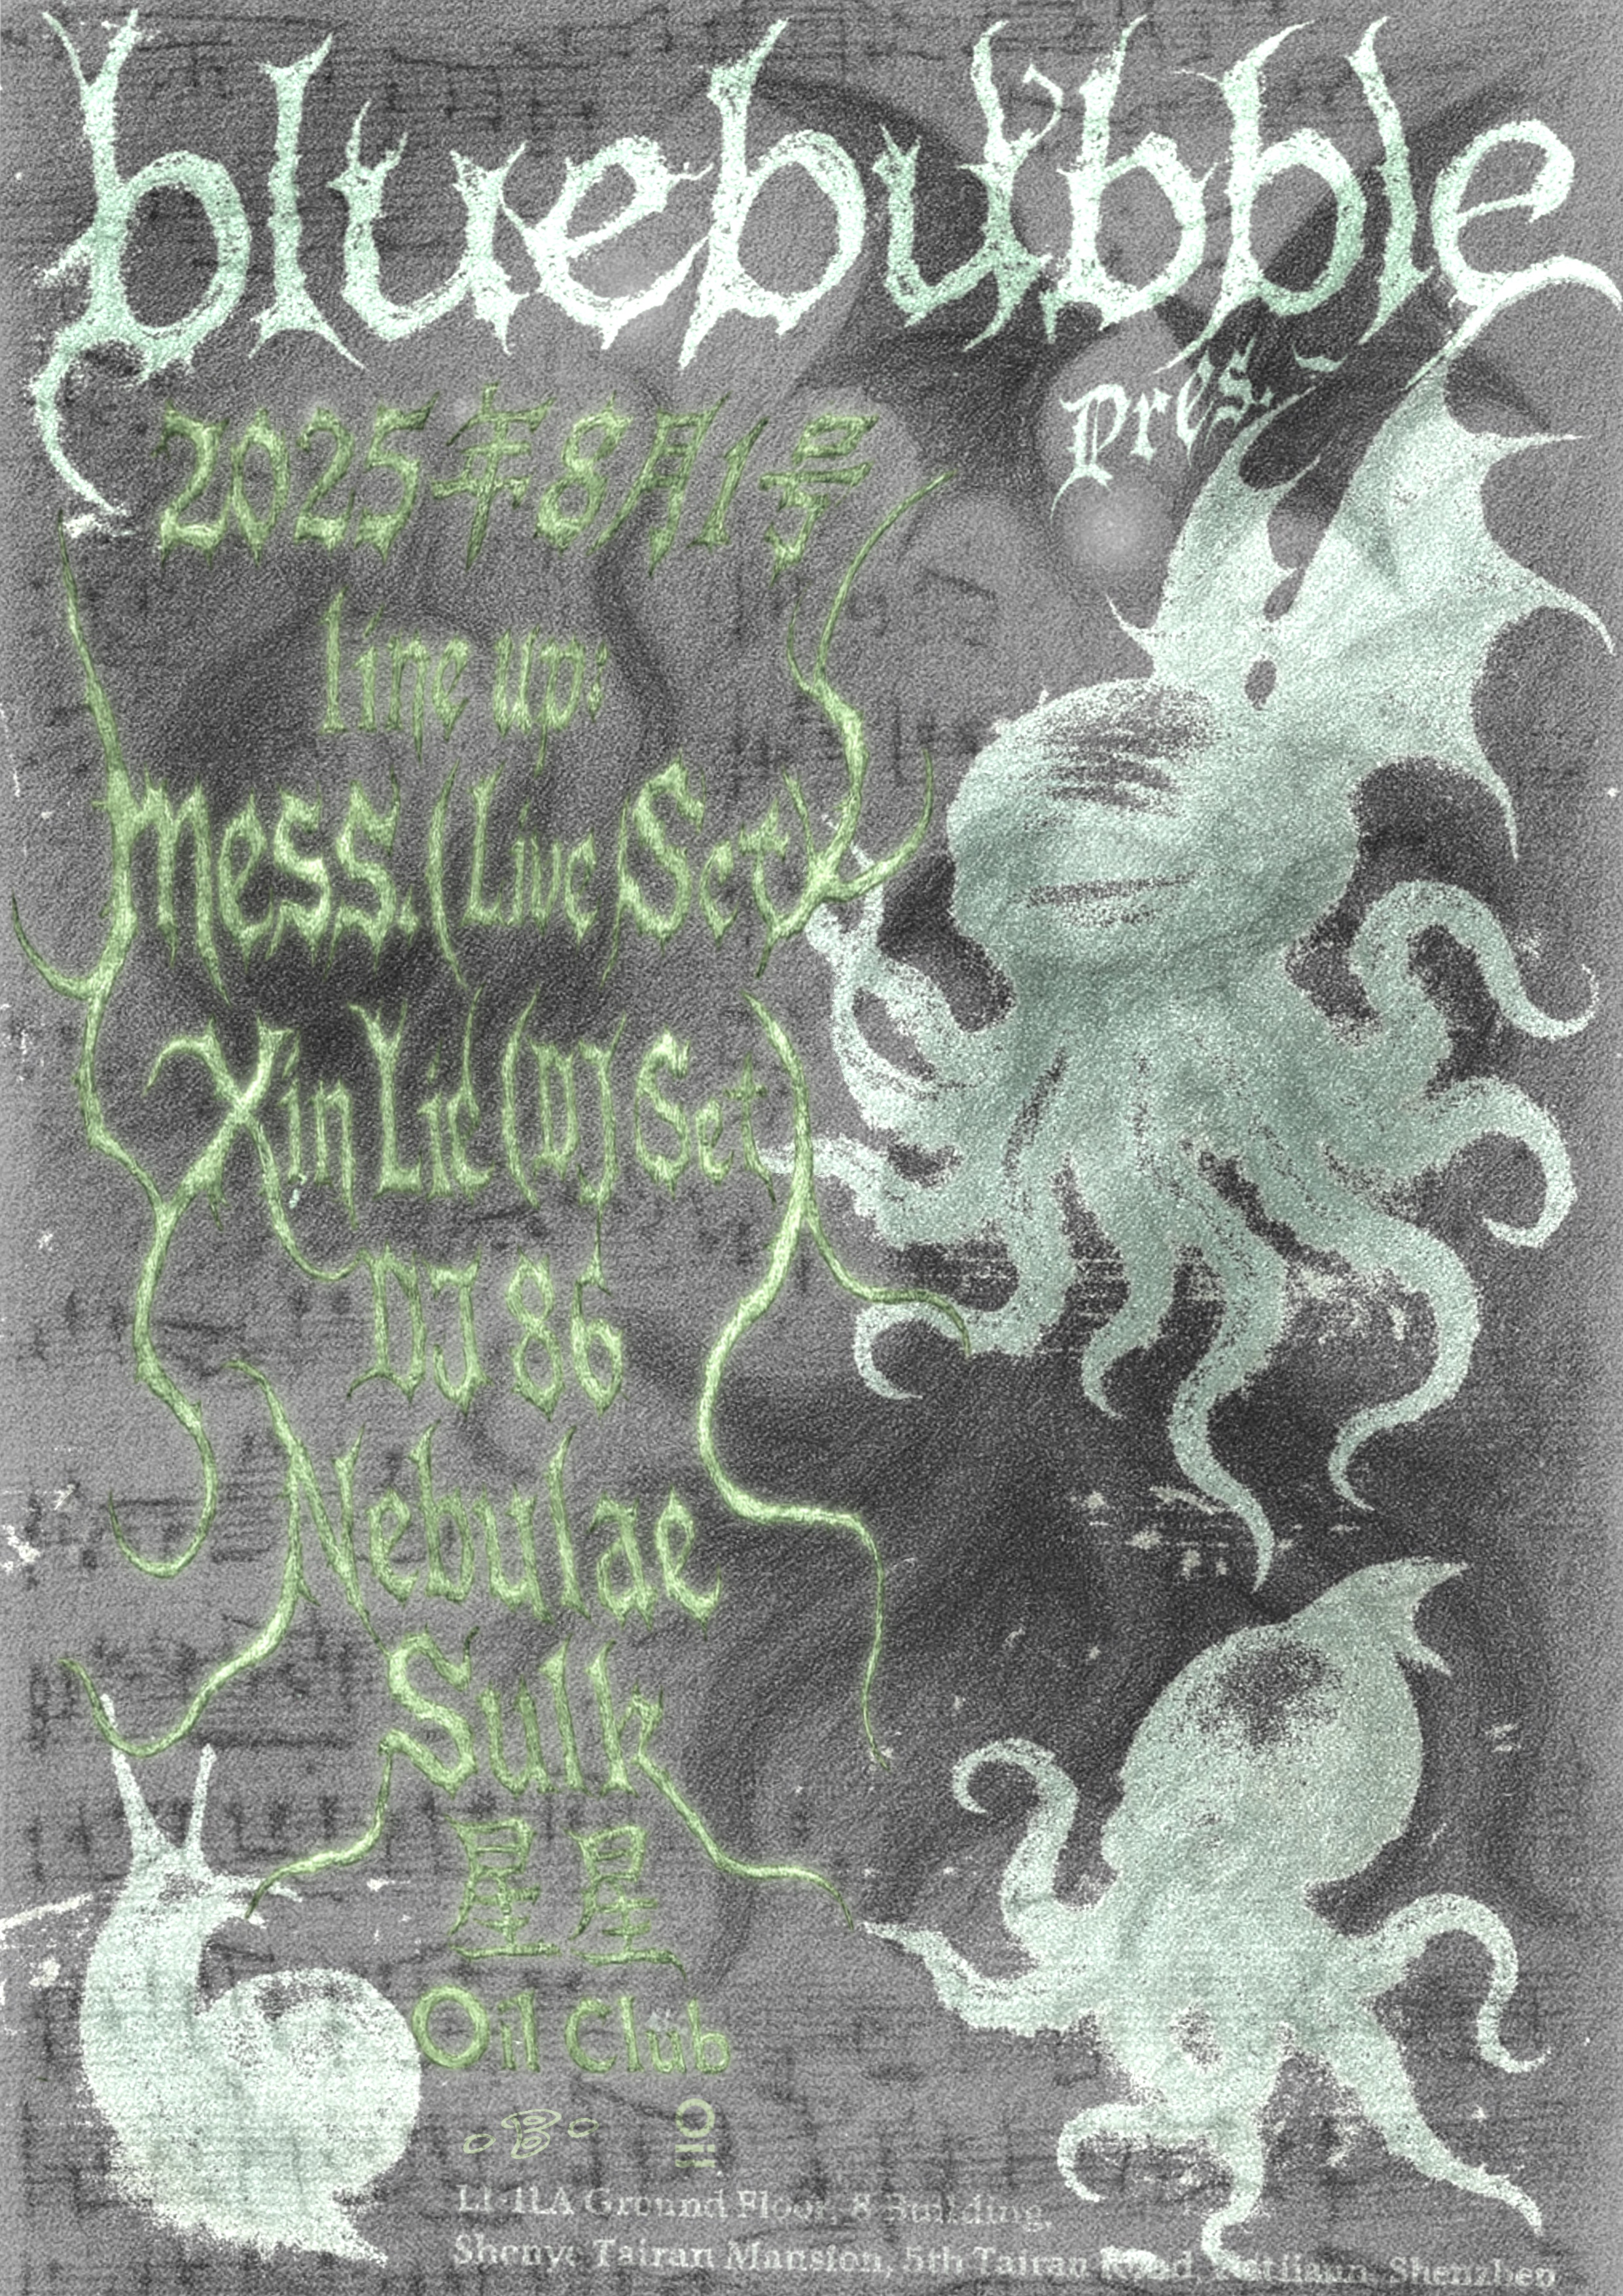 bluebubble
pres.
2025年8月1号
line up:
Mess. (Live Set)
Xin Lie (DJ Set
DJ 86
Nebulae
Sulk
星星
Oil Club
oBo
Oil
L1-11A Ground Floor, 8 Building,
Tairan Mansion, 5th Tairan Road, Shenzhen